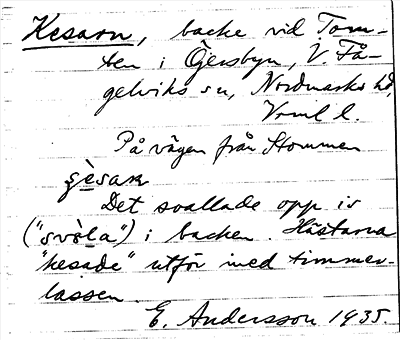 Kesarn, backe vid Tom-
ten i Gersbyn, V. Få-
gelviks sn, Nordmarks hd,
Vrml l.
På vägen från Stommen
gèsar̥
Det svallade opp is
("svòla") i backen. Hästarna
"kesade" utför med timmer-
lassen.
E. Andersson 1935.